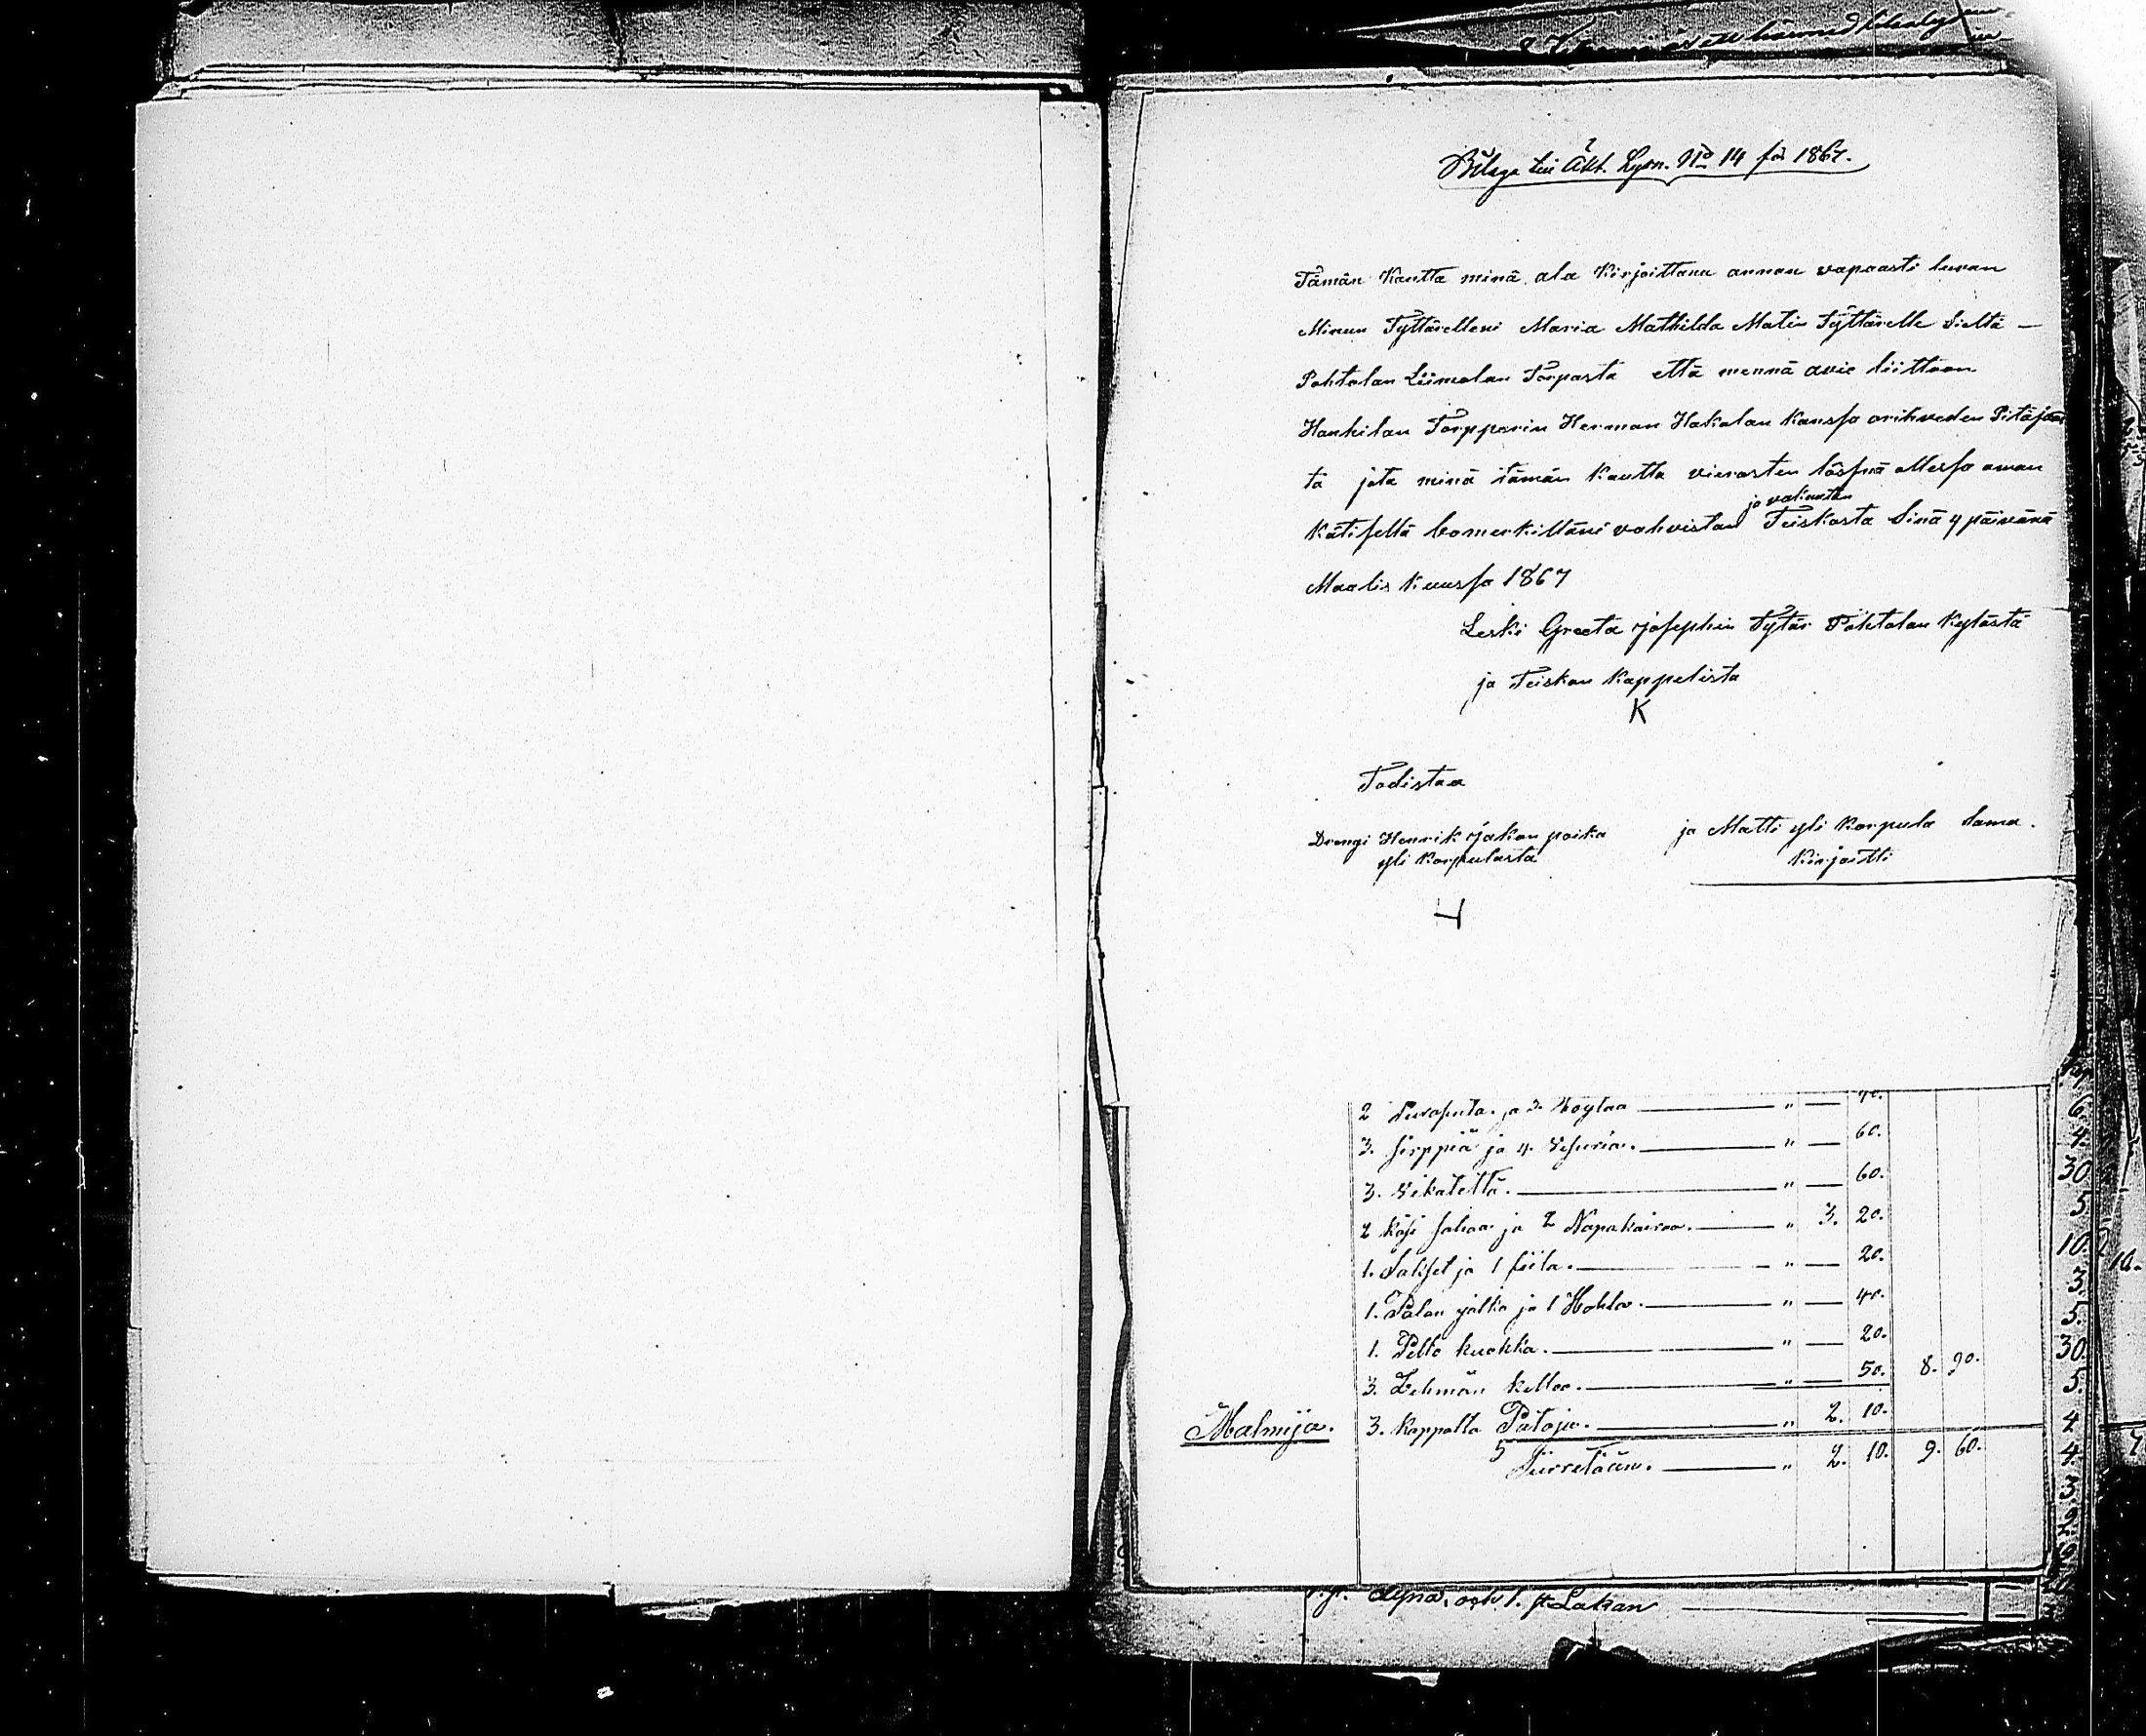 Bilaga till Äkt. Lysn. No 14 för 1867.
Tämän Kautta minä ala Kirjoittanu annan vapaasti luvan
Minun Tyttärelleni Maria Mathilda Matin Tyttärelle Sieltä —
Pohtolan Liimolan Torpasta että mennä avio liittoon
Haukilan Torpparin Herman Hakalan Kanssa orihveden Pitäjäs
tä jota minä tämän Kautta vierasten läsnä ollessa oman
ja vakuutan
Kätiseltä bomerkilläni vahvistan Teiskosta Sinä 4 päivänä
Maalis Kuussa 1867
Leski Greeta Josephin Tytär Pohtolan Kylästä
ja Teiskon Kappelista
K
Todistaa
Drengi Henrik Jakon poika ja Matti yli Korpula Sama.
yli Korpulasta Kirjoitti
2 ja 3. Köyttä — " — 40.
3. Sirppiä ja 4. Vesuria. — " — 60.
3. Vikatettä. — " — 60.
2 Käsi sahaa ja 2 Napakairaa. — " 3. 20.
1. Sakset ja 1 fiila. — " — 20.
1. Palan jalka ja 1 Hohla. — " — 40.
1. Pelto kuokka. — " — 20.
3. Lehmän kelloa. — " — 50. 8. 90.
Malmija. 3. Kappaletta Patoja. — " 2. 10.
Siirretään. — " 2. 10. 9. 60.
dyna, och 1. st Lakan